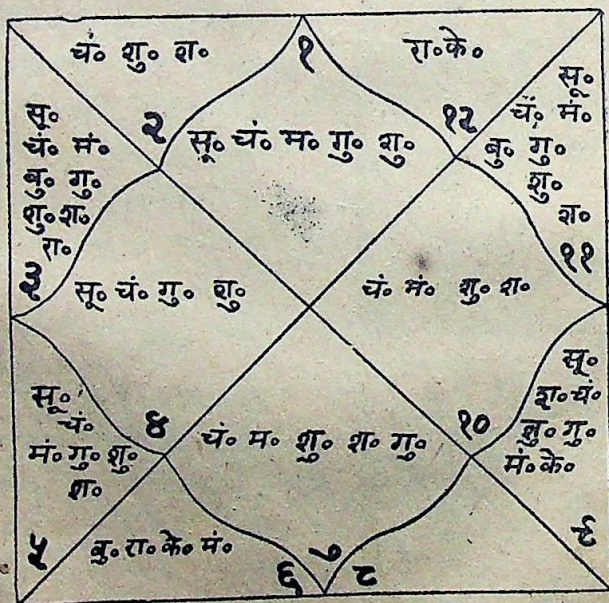 चं॰ शु॰ श॰
१
रा॰ के॰
सू॰
चं॰ मं॰
बु॰ गु॰
शु॰
श॰
सू॰
चं॰ मं॰
बु॰ गु॰
शु॰ श॰
रा॰
२
सू॰ चं॰ म॰ गु॰ शु॰
१२
३
११
सू॰ चं॰ गु॰ शु॰
चं॰ मं॰ शु॰ श॰
सू॰
चं॰
मं॰ गु॰ शु॰
श॰
४
चं॰ म॰ शु॰ श॰ गु॰
१०
सू॰
श॰ चं॰
बु॰ गु॰
मं॰ के॰
५
बु॰ रा॰ के॰ मं॰
६
७
८
९